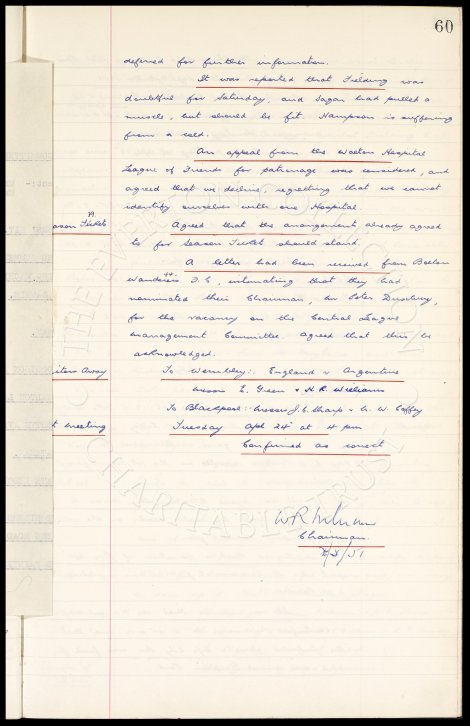 60
deferred for further information.
It was reported that Fielding was
doubtful for Saturday, and Fagan had pulled a
muscle, but should be fit. Hampson is suffering
from a cold.
An appeal from the Walton Hospital
League of Friends for patronage was considered, and
agreed that we decline, regretting that we cannot
identify ourselves with one Hospital.
ason Tickets
Agreed that the arrangements already agreed
to for Season Ticket should stand.
A letter had been received from Bolton
Wanderers F.C., intimating that they had
nominated their Chairman, Mr Peter Duxbury,
for the vacancy on the Central League
Management Committee. Agreed that this be
acknowledged.
itors Away
To Wembley:- England v Argentine
Messrs E. Green & H.R. Williams
To Blackpool:- Messrs J.C. Sharp & N. W. Coffey
t meeting
Tuesday Apl 24 at 4 pm
Confirmed as correct
Chairman.
THE EVERTON COLLECTION
CHARITABLE TRUST